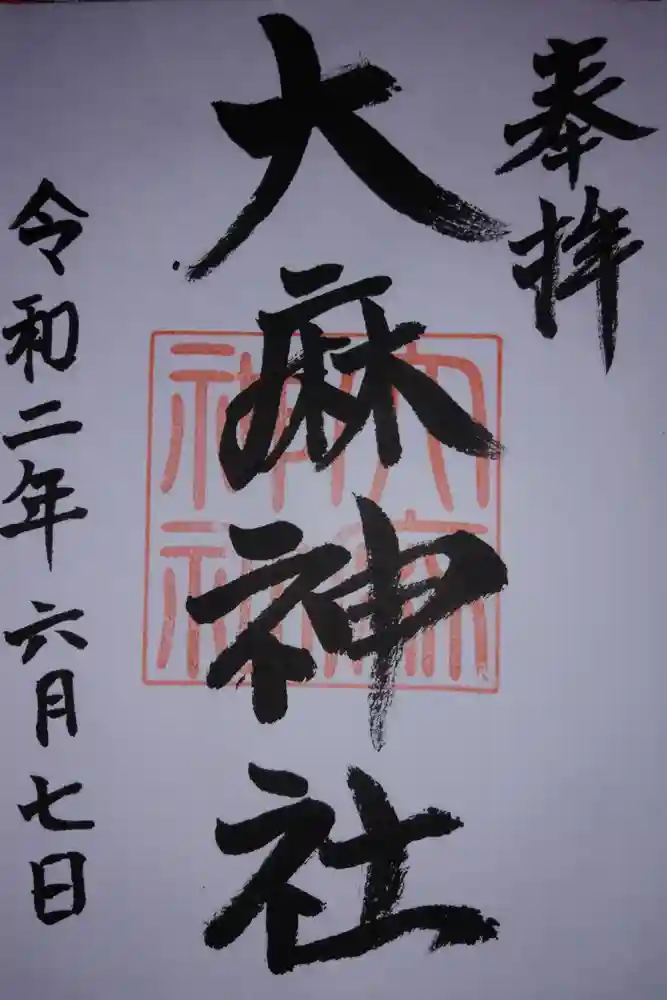 奉拝
大麻神社
令和二年六月七日
大麻
神社